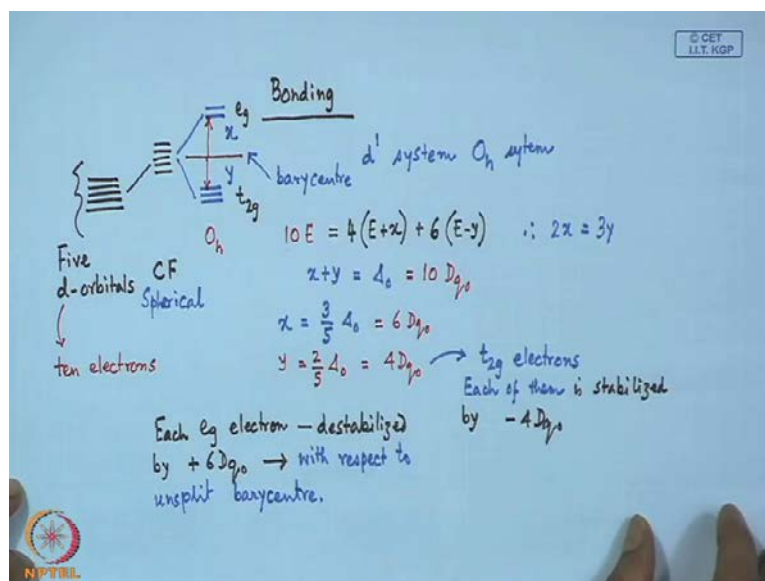 © CET
I.I.T. KGP
Bonding
eg
x
y
t2g
barycentre
d¹ system Oh sytem
Oh
10 E = 4 (E+x) + 6 (E-y) ∴ 2x = 3y
Five
d-orbitals
CF
Spherical
ten electrons
x+y = Δo = 10 Dqo
x = 3/5 Δo = 6 Dqo
y = 2/5 Δo = 4 Dqo → t2g electrons
Each of them is stabilized
by - 4 Dqo
Each eg electron – destabilized
by + 6 Dqo → with respect to
unsplit barycentre.
NPTEL